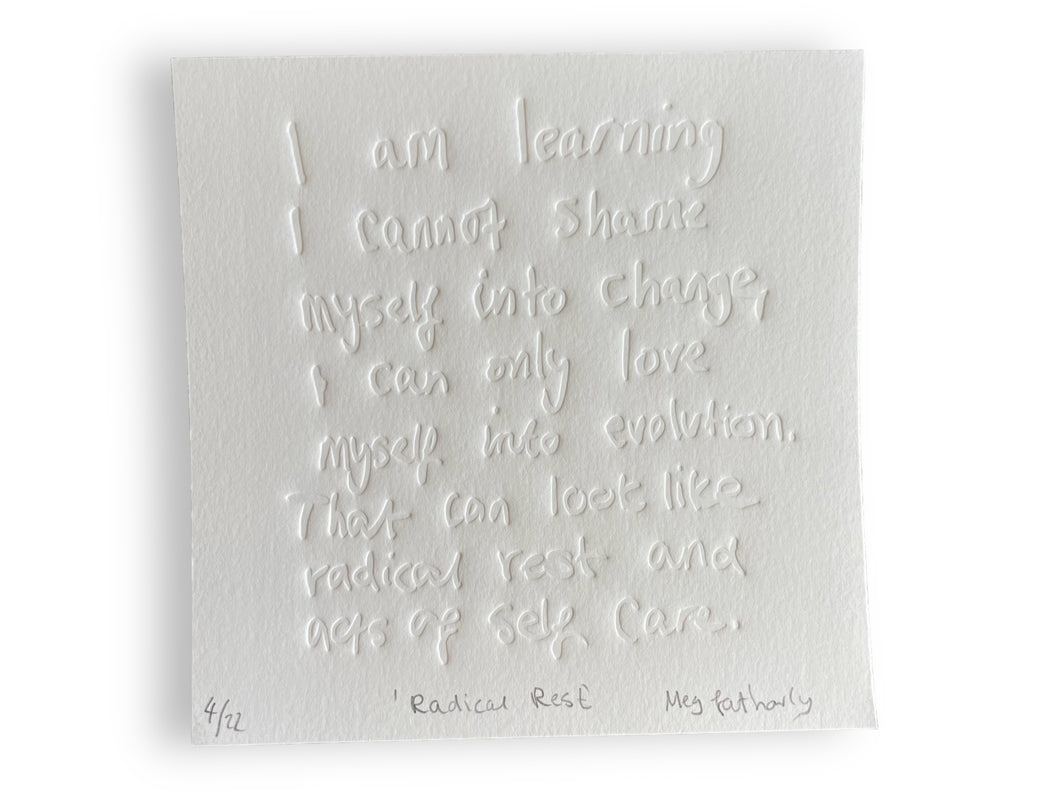 I am learning
I cannot shame
myself into change,
I can only love
myself into evolution.
That can look like
radical rest and
acts of self care.
4/22 'Radical Rest Meg Fatharly